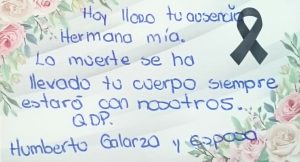 Hoy lloro tu ausencia
Hermana mía.
La muerte se ha
llevado tu cuerpo siempre
estará con nosotros.
QDP.
Humberto Galarza y esposa